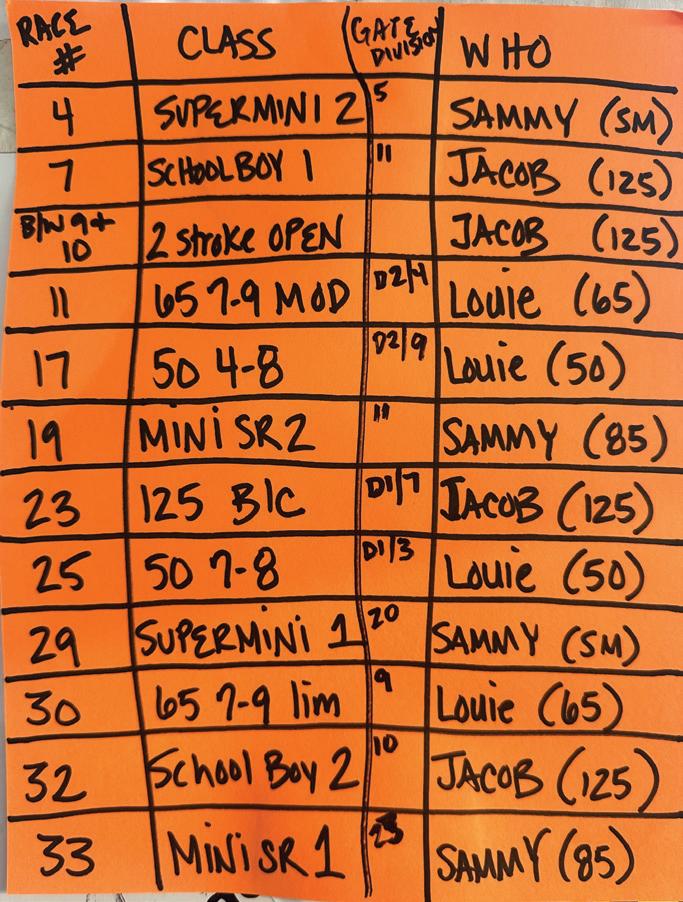 RACE # CLASS GATE DIVISION WHO
4 SUPERMINI 2 5 SAMMY (SM)
7 SCHOOLBOY 1 11 JACOB (125)
B/W 9+ 10 2 stroke OPEN JACOB (125)
11 65 7-9 MOD D2/4 Louie (65)
17 50 4-8 D2/9 Louie (50)
19 MINI SR2 11 SAMMY (85)
23 125 B/C D1/7 JACOB (125)
25 50 7-8 D1/3 Louie (50)
29 SUPERMINI 1 20 SAMMY (SM)
30 65 7-9 lim 9 Louie (65)
32 School Boy 2 10 JACOB (125)
33 MINI SR 1 SAMMY (85)